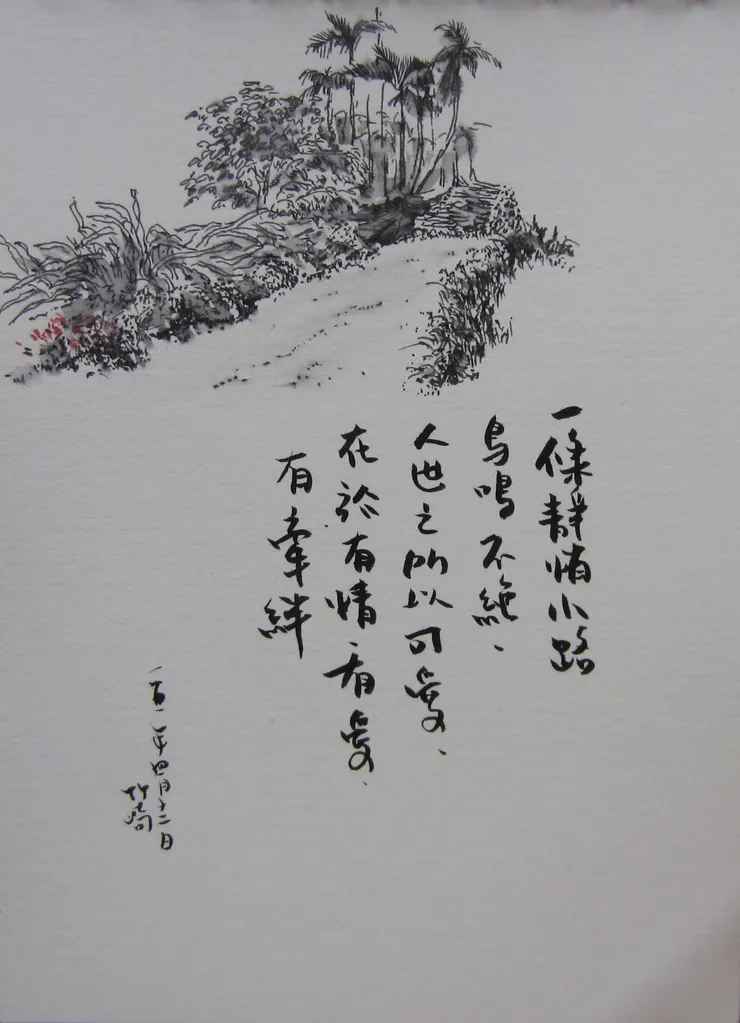 一條靜悄小路
鳥鳴不絕、
人世之所以可愛、
在於有情、有愛、
有牽絆
一百一年四月十二日
竹崎